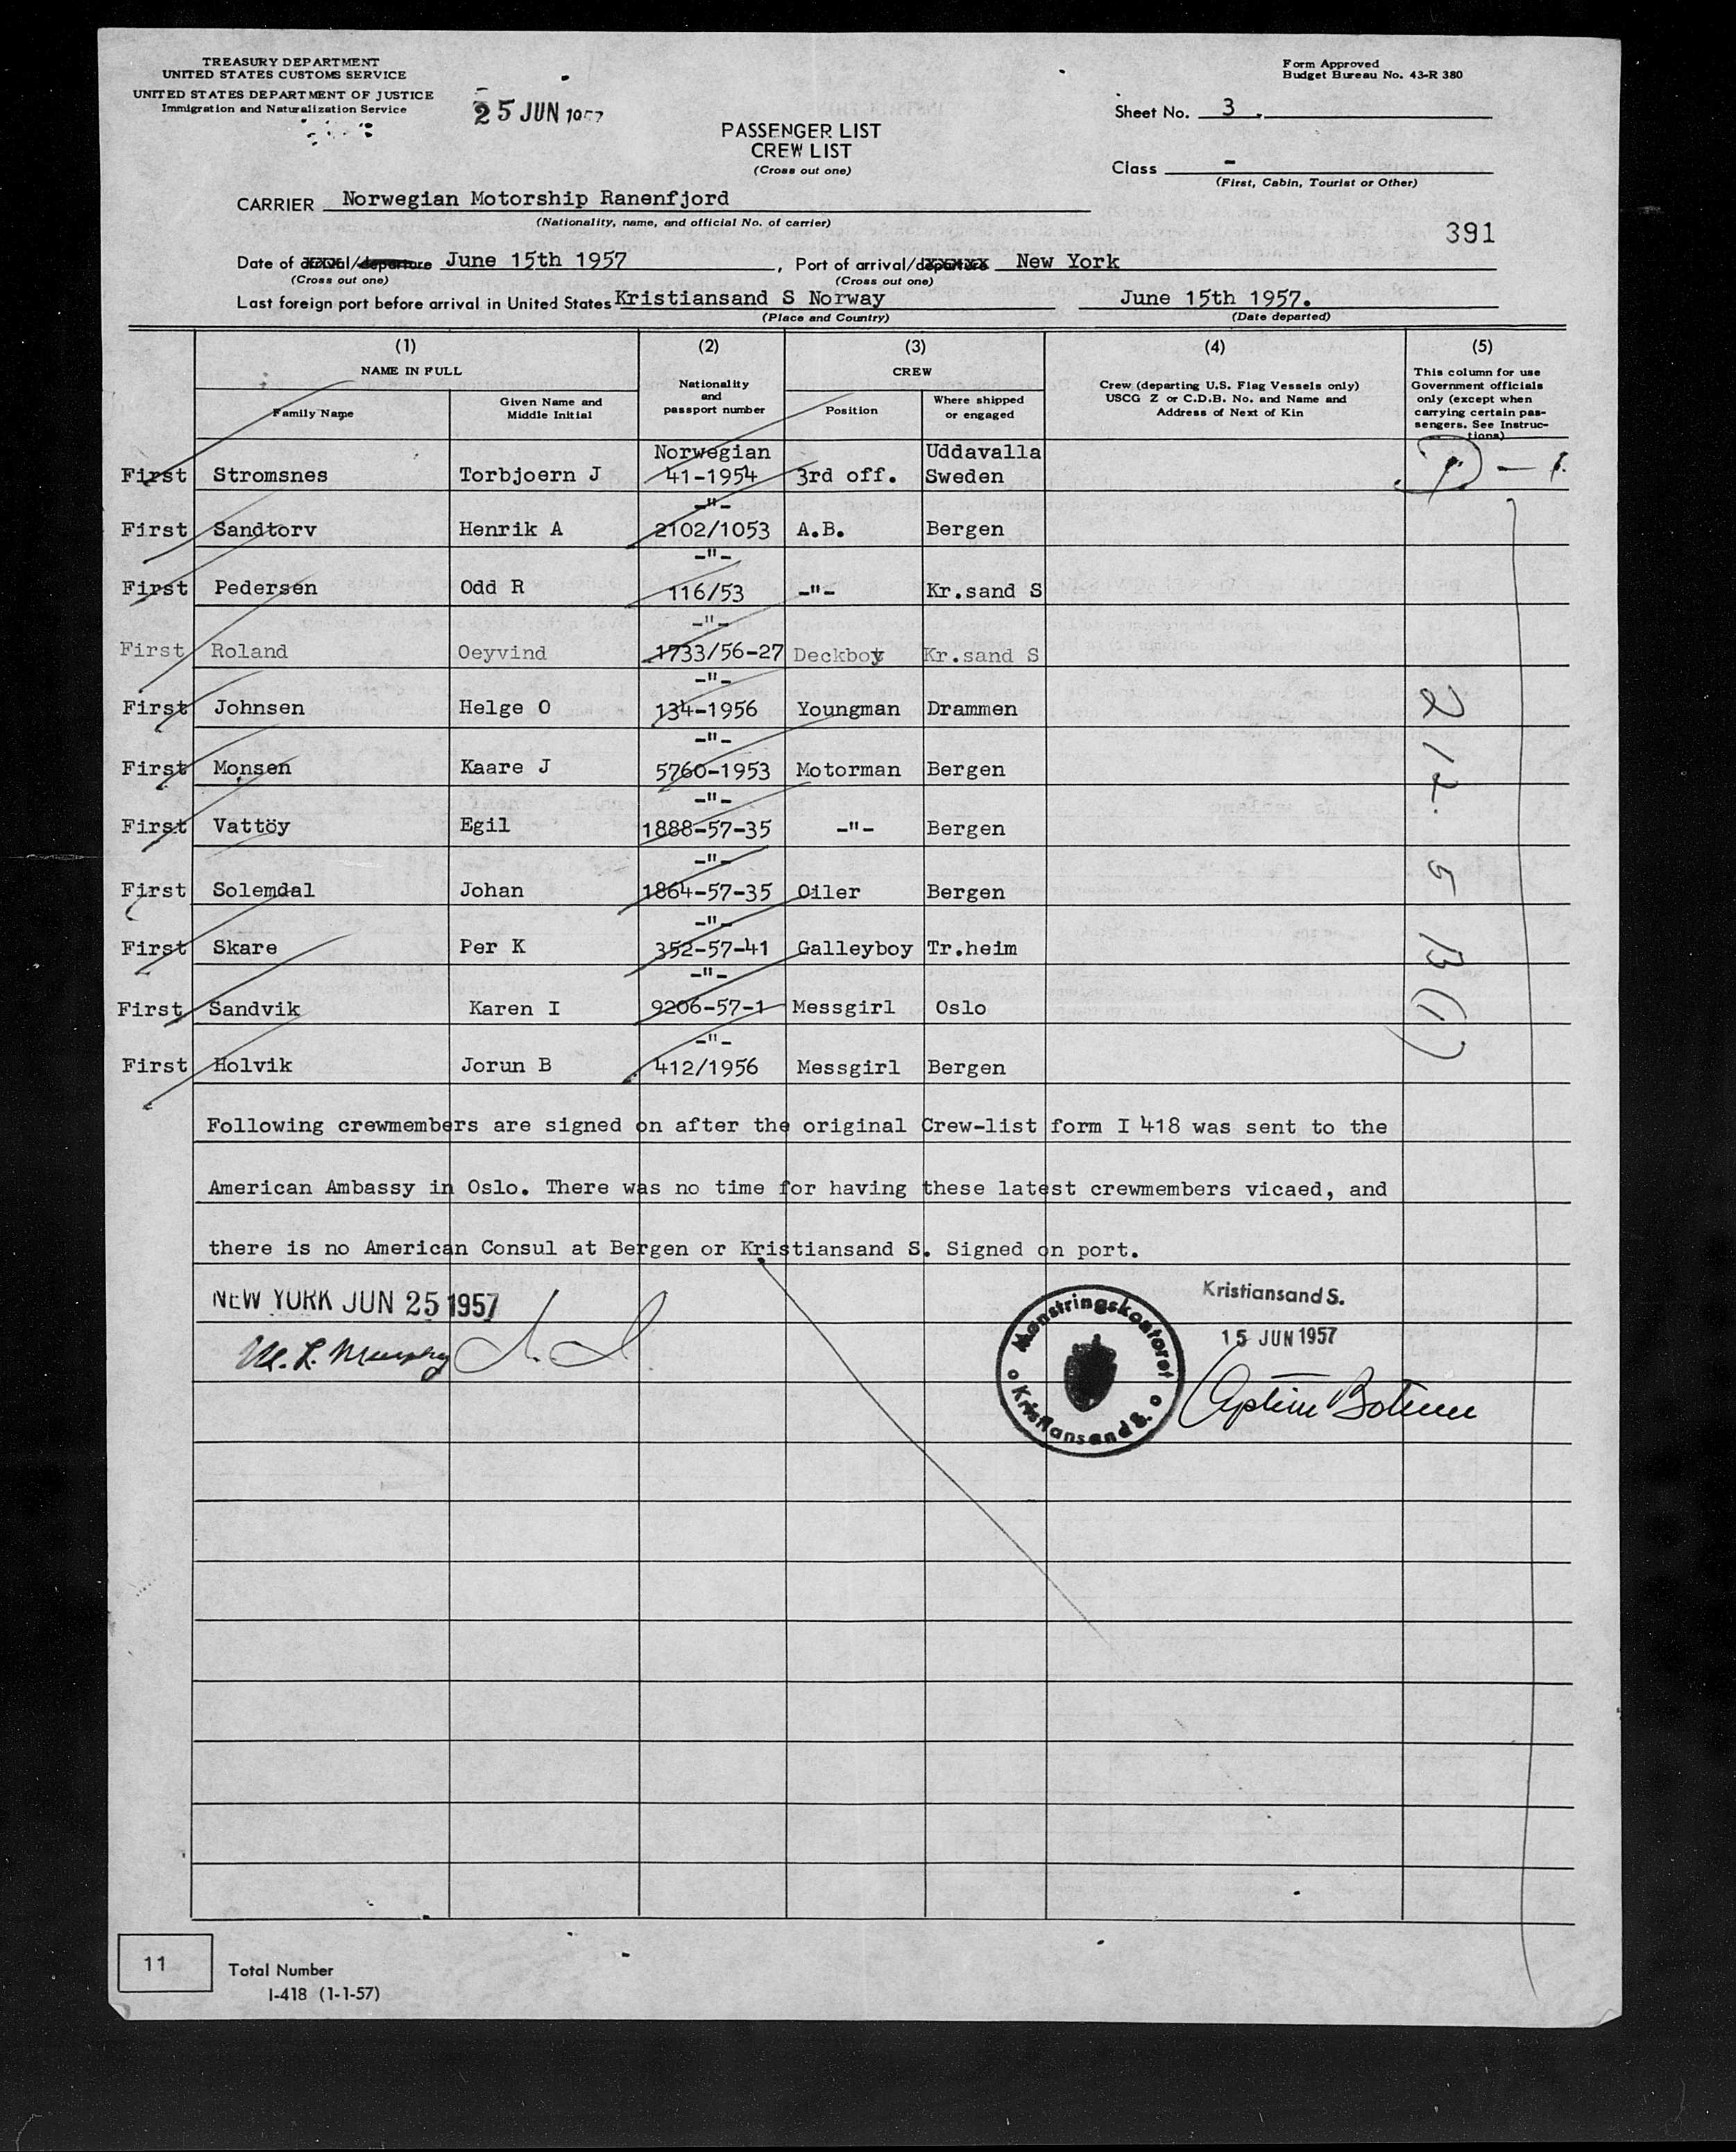 TREASURY DEPARTMENT
UNITED STATES CUSTOMS SERVICE
UNITED STATES DEPARTMENT OF JUSTICE
Immigration and Naturalization Service
25 JUN 1957
Form Approved
Budget Bureau No. 43-R 380
PASSENGER LIST
CREW LIST
(Cross out one)
Sheet No. 3
Class -
(First, Cabin, Tourist or Other)
CARRIER Norwegian Motorship Ranenfjord
(Nationality, name, and official No. of carrier)
391
Date of arrival/departure June 15th 1957, Port of arrival/departure New York
(Cross out one) (Cross out one)
Last foreign port before arrival in United States Kristiansand S Norway June 15th 1957.
(Place and Country) (Date departed)
(1) (2) (3) (4) (5)
NAME IN FULL
Family Name
Given Name and
Middle Initial
Nationality
and
passport number
CREW
Position
Where shipped
or engaged
Crew (departing U.S. Flag Vessels only)
USCG Z or C.D.B. No. and Name and
Address of Next of Kin
This column for use
Government officials
only (except when
carrying certain pas-
sengers. See Instruc-
tions)
Norwegian Uddavalla
First Stromsnes Torbjoern J 41-1954 3rd off. Sweden
-"-
First Sandtorv Henrik A 2102/1053 A.B. Bergen
-"-
First Pedersen Odd R 116/53 -"- Kr.sand S
-"-
First Roland Oeyvind 1733/56-27 Deckboy Kr.sand S
-"-
First Johnsen Helge O 134-1956 Youngman Drammen
-"-
First Monsen Kaare J 5760-1953 Motorman Bergen
-"-
First Vattöy Egil 1888-57-35 -"- Bergen
-"-
First Solemdal Johan 1864-57-35 Oiler Bergen
-"-
First Skare Per K 352-57-41 Galleyboy Tr.heim
-"-
First Sandvik Karen I 9206-57-1 Messgirl Oslo
-"-
First Holvik Jorun B 412/1956 Messgirl Bergen
Following crewmembers are signed on after the original Crew-list form I 418 was sent to the
American Ambassy in Oslo. There was no time for having these latest crewmembers vicaed, and
there is no American Consul at Bergen or Kristiansand S. Signed on port.
NEW YORK JUN 25 1957
M. L. Murphy
Mønstringskontoret
Kristiansand S.
Kristiansand S.
15 JUN 1957
11
Total Number
I-418 (1-1-57)